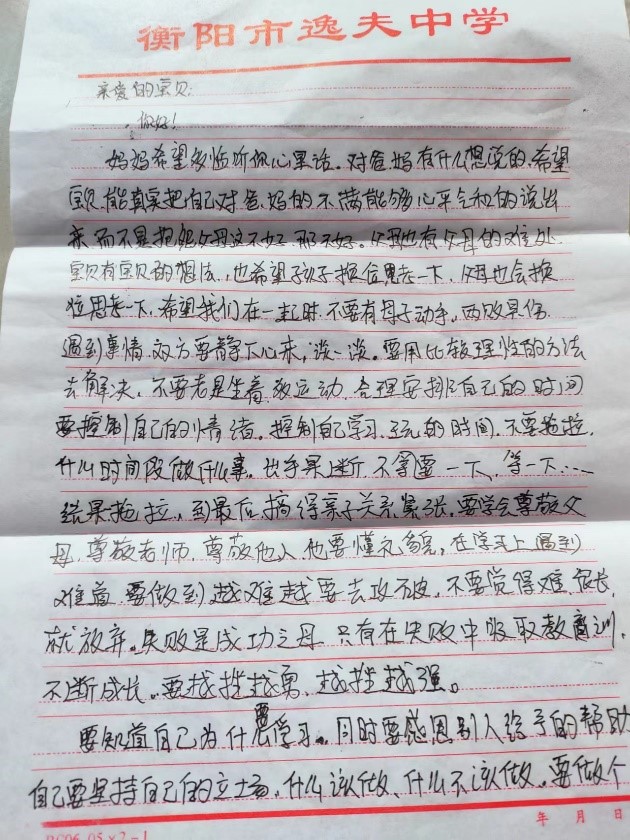 衡阳市逸夫中学
亲爱的宝贝:
你好!
妈妈希望多监听你心里话。对爸.妈有什么想说的.希望
宝贝能真实把自己对爸.妈的不满能够心平气和的说出
来.而不是抱怨父母这不好.那不好。父母也有父母的难处
宝贝有宝贝的想法,也希望孩子换位思考一下,父母也会换
位思考一下,希望我们在一起时.不要有母子动手。两败具伤
遇到事情.双方要静下心来,谈一谈。要用比较理性的方法
去解决,不要老是坐着.多运动.合理安排自己的时间
要控制自己的情绪。控制自己学习.玩的时间.不要拖拉.
什么时间段做什么事。出手果断.不等要一下、等一下…
结果拖拉,到最后搞得亲子关系紧张,要学会尊敬父
母.尊敬老师.尊敬他人.也要懂礼貌,在学习上遇到
难道.要做到越难越要去攻破,不要觉得难.很长,
就放弃。失败是成功之母.只有在失败中吸取教训,
不断成长。要越挫越勇.越挫越强。
要知道自己为什么要学习。同时要感恩别人给予的帮助
自己要坚持自己的立场,什么该做、什么不该做。要做个
年 月 日